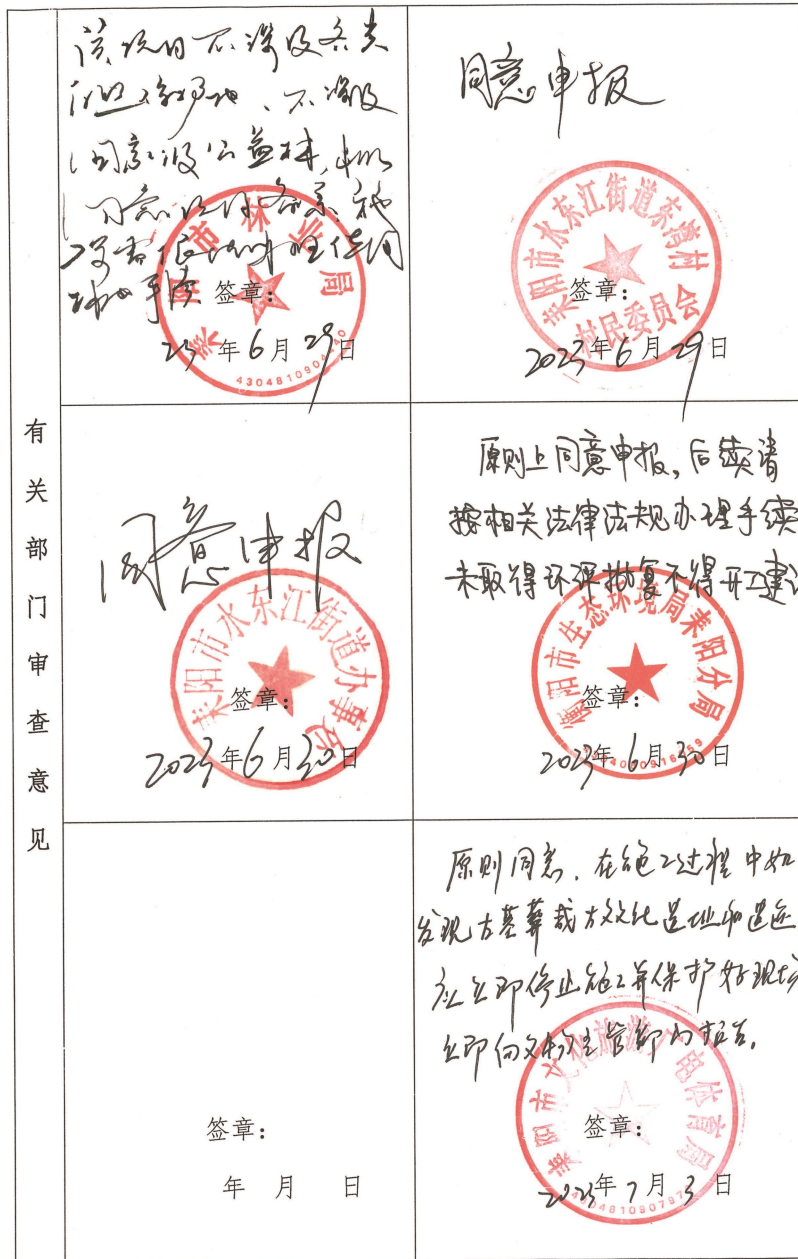 有关部门审查意见
该项目不涉及各类
自然保护地、不涉及
国家级公益林,
同意
手续
耒阳市林业局
签章:
23年6月29日
同意申报
耒阳市水东江街道东湾村
村民委员会
签章:
2023年6月29日
同意申报
耒阳市水东江街道办事处
签章:
2023年6月30日
原则上同意申报,后续请
按相关法律法规办理手续
未取得环评批复不得开工建设
衡阳市生态环境局耒阳分局
签章:
2023年6月30日
签章:
年 月 日
原则同意,在施工过程中如
发现古墓葬或古文化遗址和遗迹
应立即停止施工并保护好现场
立即向文物主管部门报告。
耒阳市文化旅游广电体育局
签章:
2023年7月3日